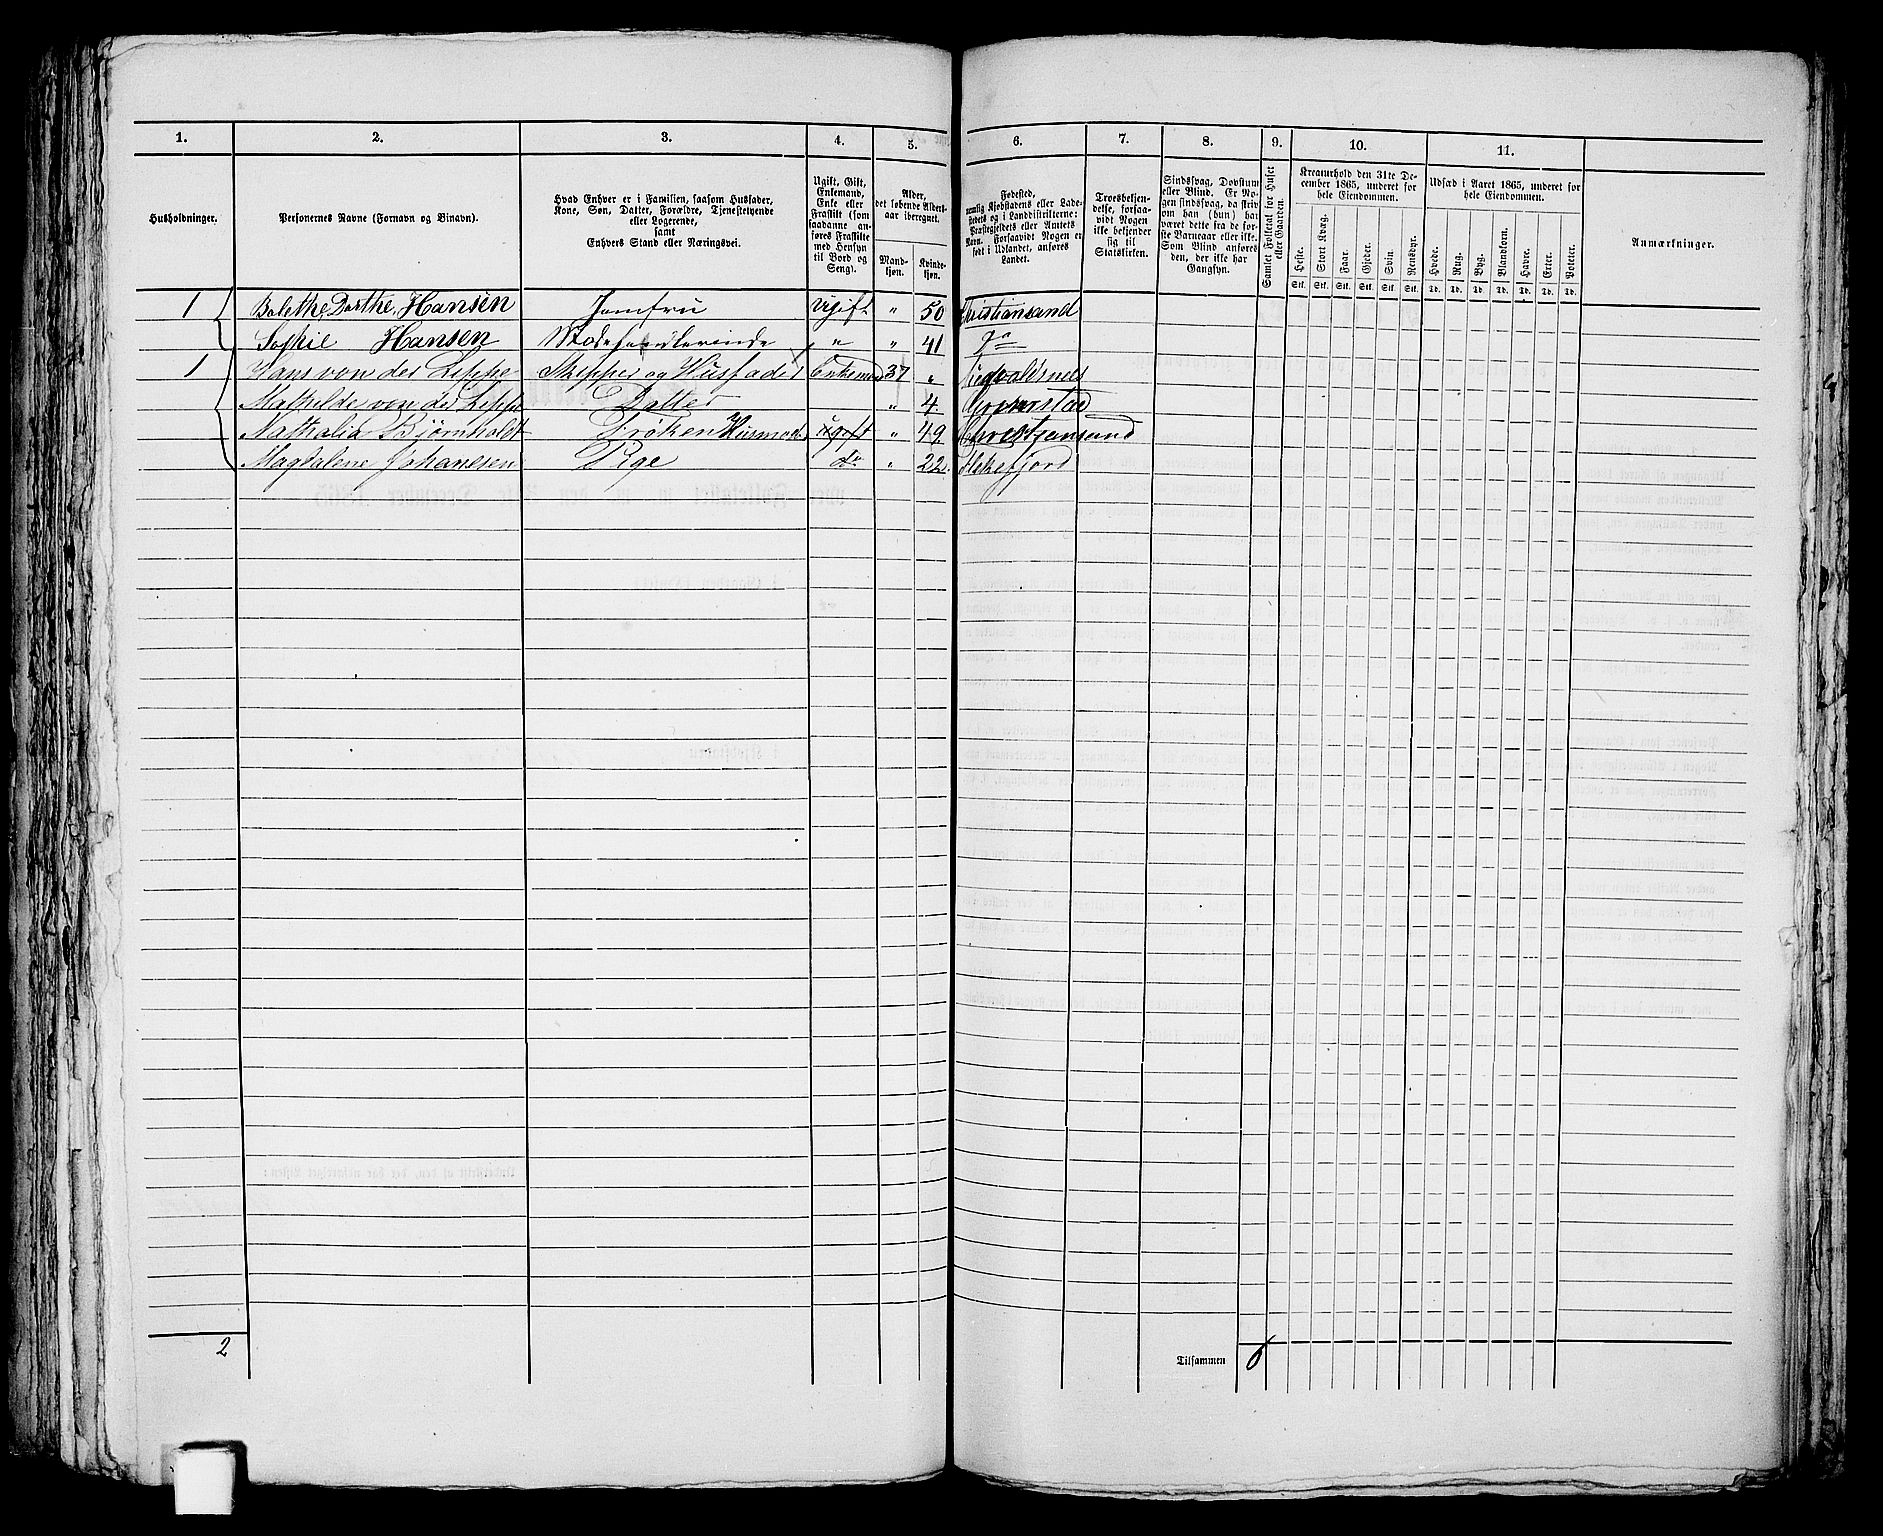 1. 2. 3. 4. 5. 6. 7. 8. 9. 10. 11.
Husholdninger.
Personernes Navne (Fornavn og Binavn).
Hvad Enhver er i Familien, saasom Husfader,
Kone, Søn, Datter, Forældre, Tjenestetyende
eller Logerende,
samt
Enhvers Stand eller Næringsvei.
Ugift, Gift,
Enkemand,
Enke eller
Fraskilt (som
saadanne an-
føres Fraskilte
med Hensyn
til Bord og
Seng).
Alder,
det løbende Alders-
aar iberegnet.
Mand-
kjøn.
Kvinde-
kjøn.
Fødested,
nemlig Kjøbstadens eller Lade-
stedets og i Landdistrikterne:
Præstegjeldets eller Amtets
Navn. Forsaavidt Nogen er
født i Udlandet, anføres
Landet.
Troesbekjen-
delse, forsaa-
vidt Nogen
ikke bekjender
sig til
Statskirken.
Sindssvag, Døvstum
eller Blind. Er No-
gen sindssvag, da skriv
om han (hun) har
været dette fra de før-
ste Barneaar eller ikke.
Som Blind anføres
den, der ikke har
Gangsyn.
Samlet Folketal for Huset
eller Gaarden.
Kreaturhold den 31te De-
cember 1865, underet for
hele Eiendommen.
Heste. Stort Kvæg. Faar. Gjeder. Svin Rensdyr.
Stk. Stk. Stk. Stk. Stk. Stk.
Udsæd i Aaret 1865, underet for
hele Eiendommen.
Hvede. Rug. Byg. Blandkorn. Havre. Erter. Poteter.
Td. Td. Td. Td. Td. Td. Td.
Anmærkninger.
1 Bolethe Dorthe Hansen Jomfru Ugift " 50 Christiansand
Sophie Hansen Modehandlerinde " " 41 Do
1 Hans von der Lippe Skipper og Husfader Enkemand 37 " Augvaldsnes
Mathilde von der Lippe Datter " 4
Nathalia Bjørnholdt Frøken Husmod. ugift " 49 Christiansand
Magdalene Johanesen Pige do " 22 Flekefjord
2
Tilsammen 6